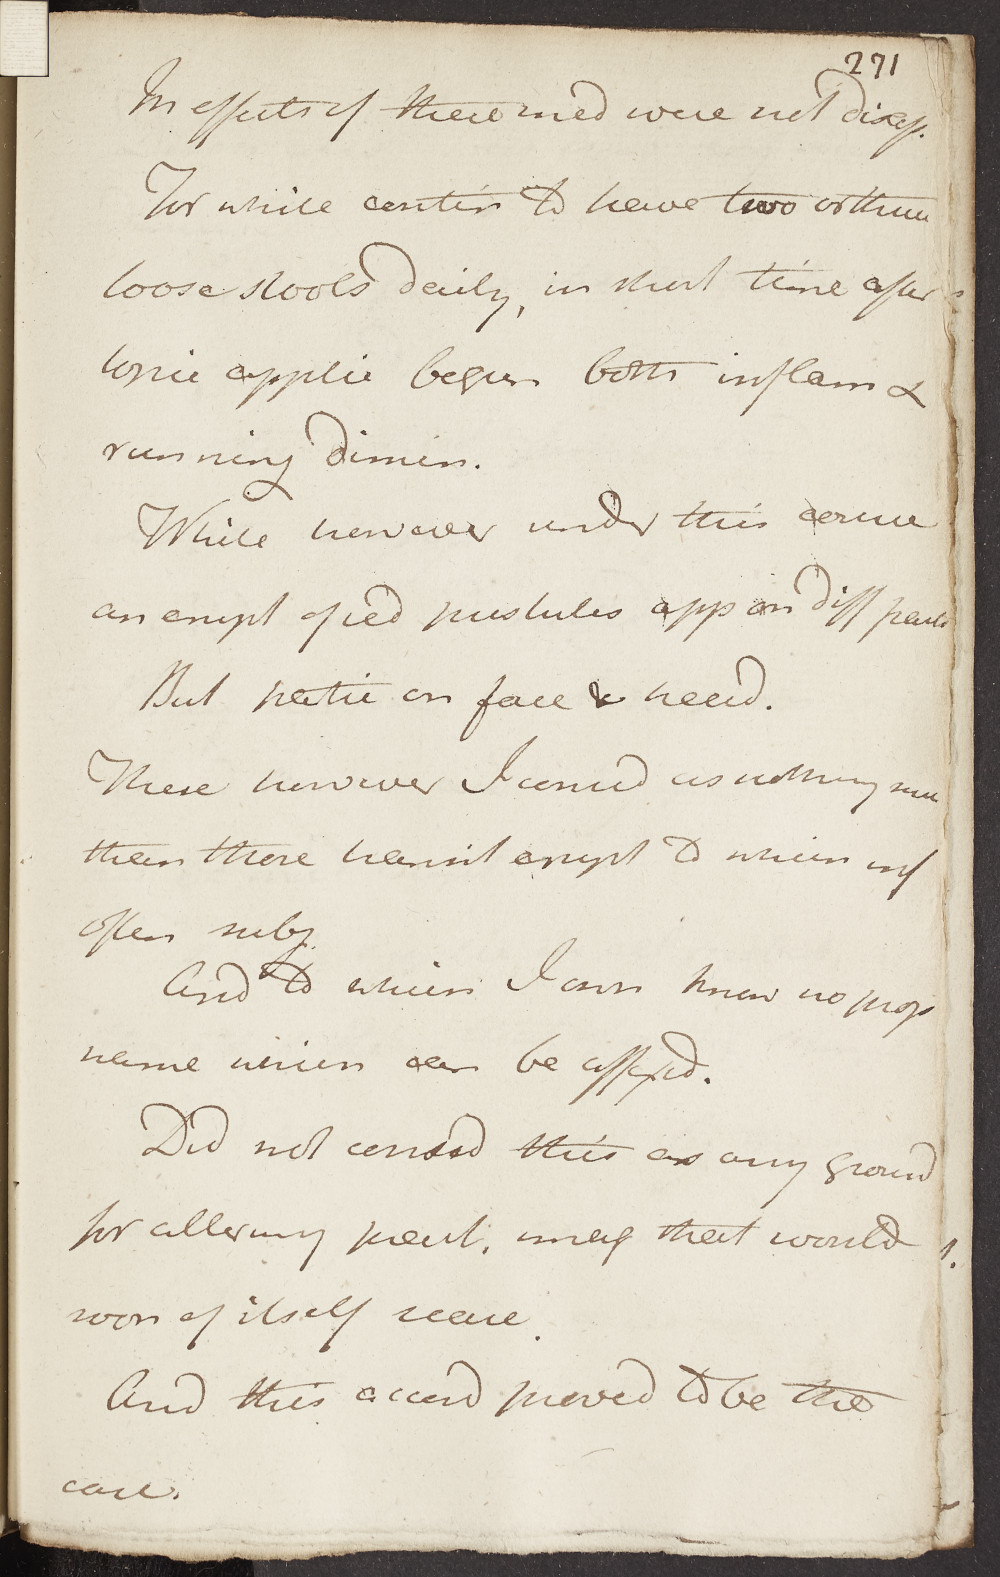 271
In effects of these med were not disap.
For while contin to have two or three
loose stools daily, in short time after
topic applic began both inflam &
running dimin.
While however under this course
an erupt of red pustules app on diff parts
But partic on face & head.
These however I consid as nothing more
than those transit erupt to which inf
often subj.
And to which I own know no prop
name which can be affixd.
Did not consid this as any ground
for altering pract. imag that would
soon of itself cease.
And this accord proved to be the
case.